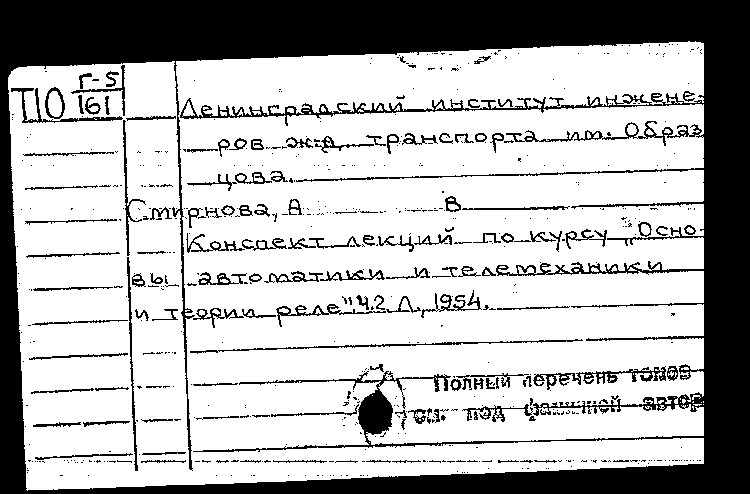 Г-5
П10 161
Ленинградский институт инжене-
ров ж-д транспорта им. Образ
цова.
Смирнова, А В
Конспект лекций по курсу „Осно-
вы автоматики и телемеханики
и теории реле". Ч.2 Л., 1954.
Полный перечень томов
см. под фамилией автор